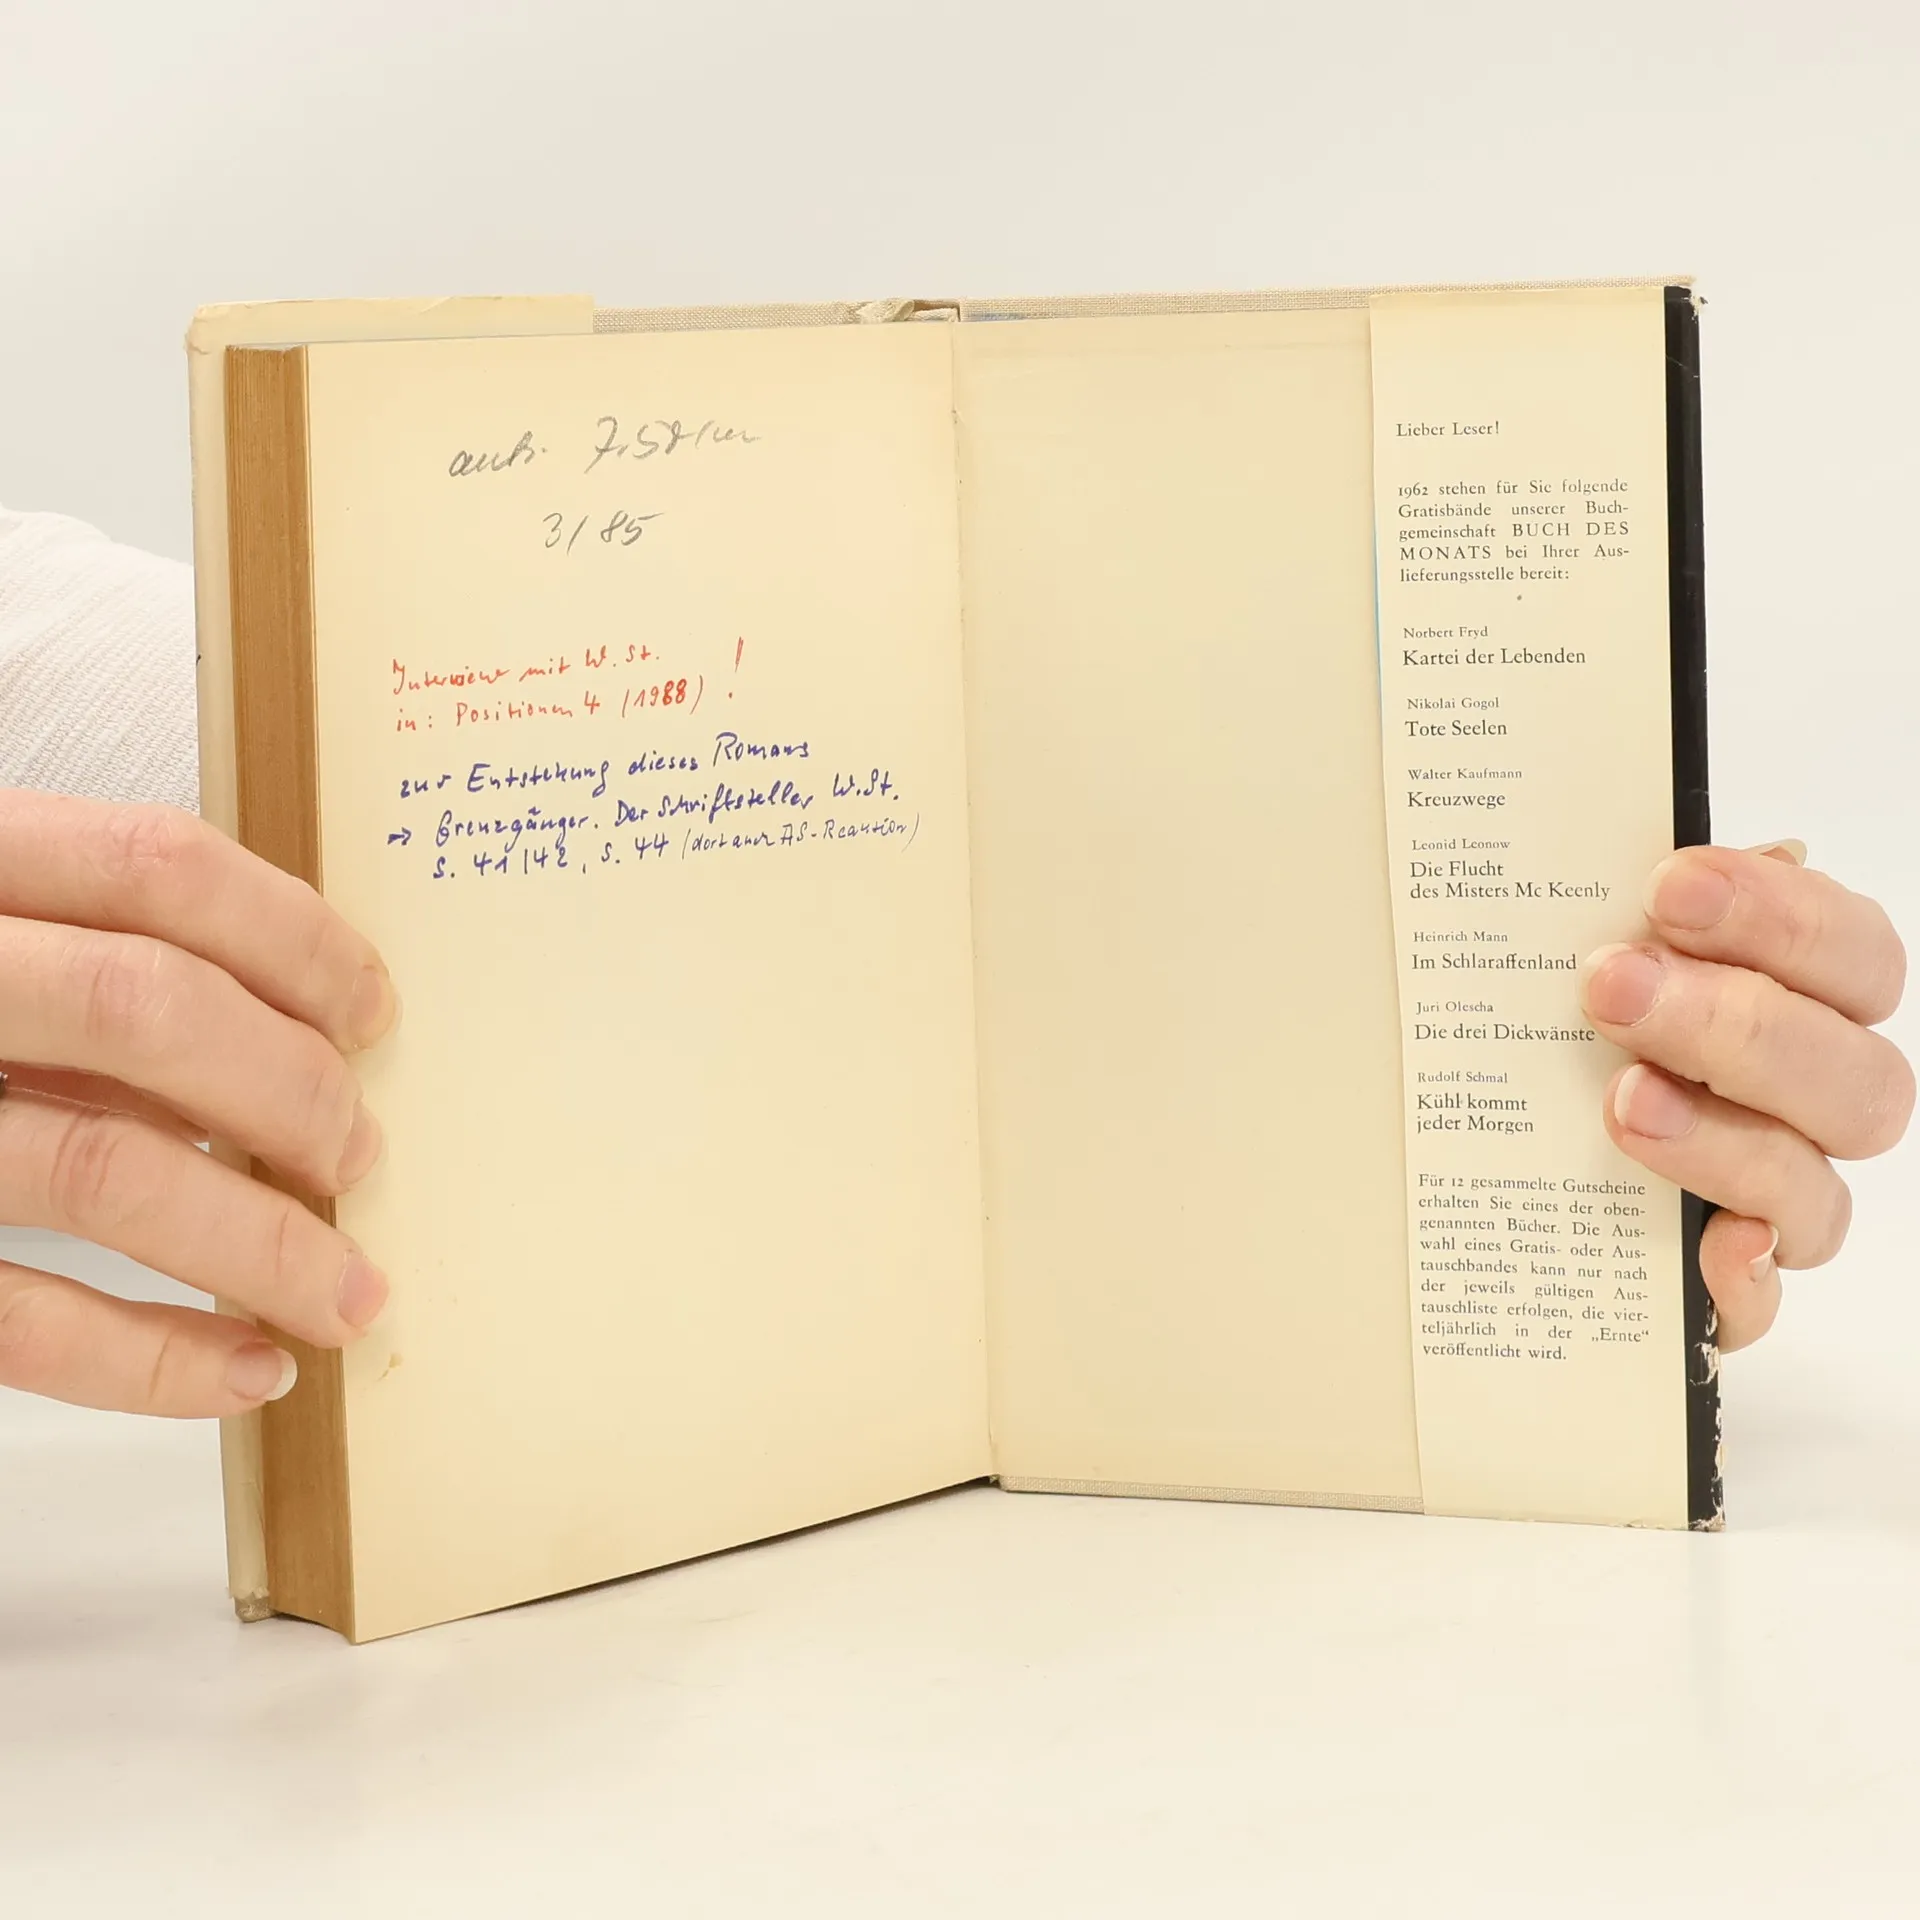 antb.
3/85
Interview mit W. St.
in: Positionen 4 (1988) !
zur Entstehung dieses Romans
→ Grenzgänger. Der Schriftsteller W. St.
S. 41/42, S. 44 (dort auch AS-Reaktion)
Lieber Leser!
1962 stehen für Sie folgende
Gratisbände unserer Buch-
gemeinschaft BUCH DES
MONATS bei Ihrer Aus-
lieferungsstelle bereit:
Norbert Fryd
Kartei der Lebenden
Nikolai Gogol
Tote Seelen
Walter Kaufmann
Kreuzwege
Leonid Leonow
Die Flucht
des Misters Mc Keenly
Heinrich Mann
Im Schlaraffenland
Juri Olescha
Die drei Dickwänste
Rudolf Schmal
Kühl kommt
jeder Morgen
Für 12 gesammelte Gutscheine
erhalten Sie eines der oben-
genannten Bücher. Die Aus-
wahl eines Gratis- oder Aus-
tauschbandes kann nur nach
der jeweils gültigen Aus-
tauschliste erfolgen, die vier-
teljährlich in der „Ernte“
veröffentlicht wird.